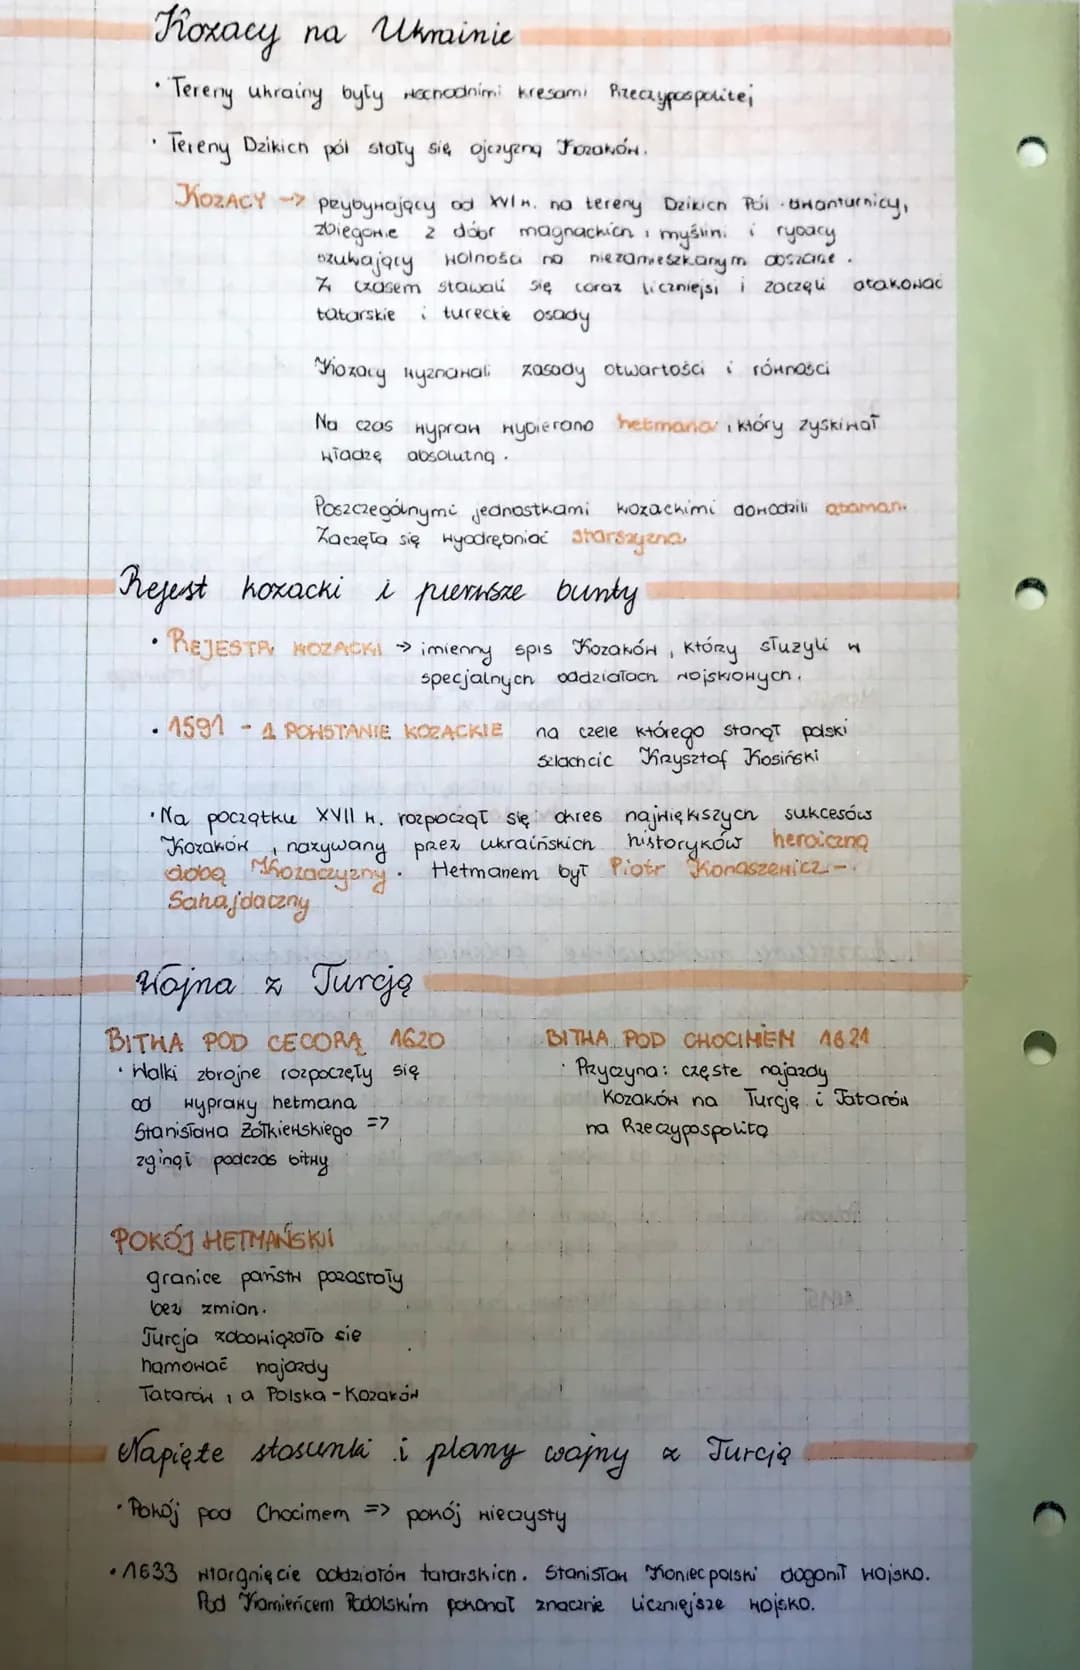 Kozacy na Ukrainie
• Tereny ukrainy były wschodnimi kresami Rzeczypospolitej
• Tereny Dzikich pól stały się ojczyzną Kozaków.
KOZACY -> przybywający od XVI w. na tereny Dzikich Pól awanturnicy,
zbiegowie z dóbr magnackich, myśliwi i rybacy
szukający wolności na niezamieszkanym obszarze.
Z czasem stawali się coraz liczniejsi i zaczęli atakować
tatarskie i tureckie osady
Kozacy wyznawali zasady otwartości i równości
Na czas wypraw wybierano hetmana, który zyskiwał
władzę absolutną.
Poszczególnymi jednostkami kozackimi dowodzili ataman.
Zaczęła się wyodrębniać starszyzna.
Rejest kozacki i pierwsze bunty
• REJESTR KOZACKI -> imienny spis Kozaków, którzy służyli w
specjalnych oddziałach wojskowych.
• 1591 - 1 POWSTANIE KOZACKIE na czele którego stanął polski
szlachcic Krzysztof Kosiński
• Na początku XVII w. rozpoczął się okres największych sukcesów
Kozaków, nazywany przez ukraińskich historyków heroiczną
dobą Kozaczyzny. Hetmanem był Piotr Konaszewicz-
Sahajdaczny
Wojna z Turcją
BITWA POD CECORĄ 1620
• Walki zbrojne rozpoczęły się
od wyprawy hetmana
Stanisława Żółkiewskiego =>
zginął podczas bitwy
BITWA POD CHOCIMIEM 1621
• Przyczyna: częste najazdy
Kozaków na Turcję i Tatarów
na Rzeczypospolitą
POKÓJ HETMAŃSKI
granice państw pozostały
bez zmian.
Turcja zobowiązała się
hamować najazdy
Tatarów, a Polska - Kozaków
Napięte stosunki i plany wojny z Turcją
• Pokój pod Chocimem => pokój wieczysty
• 1633 wtorgnięcie oddziałów tatarskich. Stanisław Koniecpolski dogonił wojsko.
Pod Kamieńcem Podolskim pokonał znacznie liczniejsze wojsko.